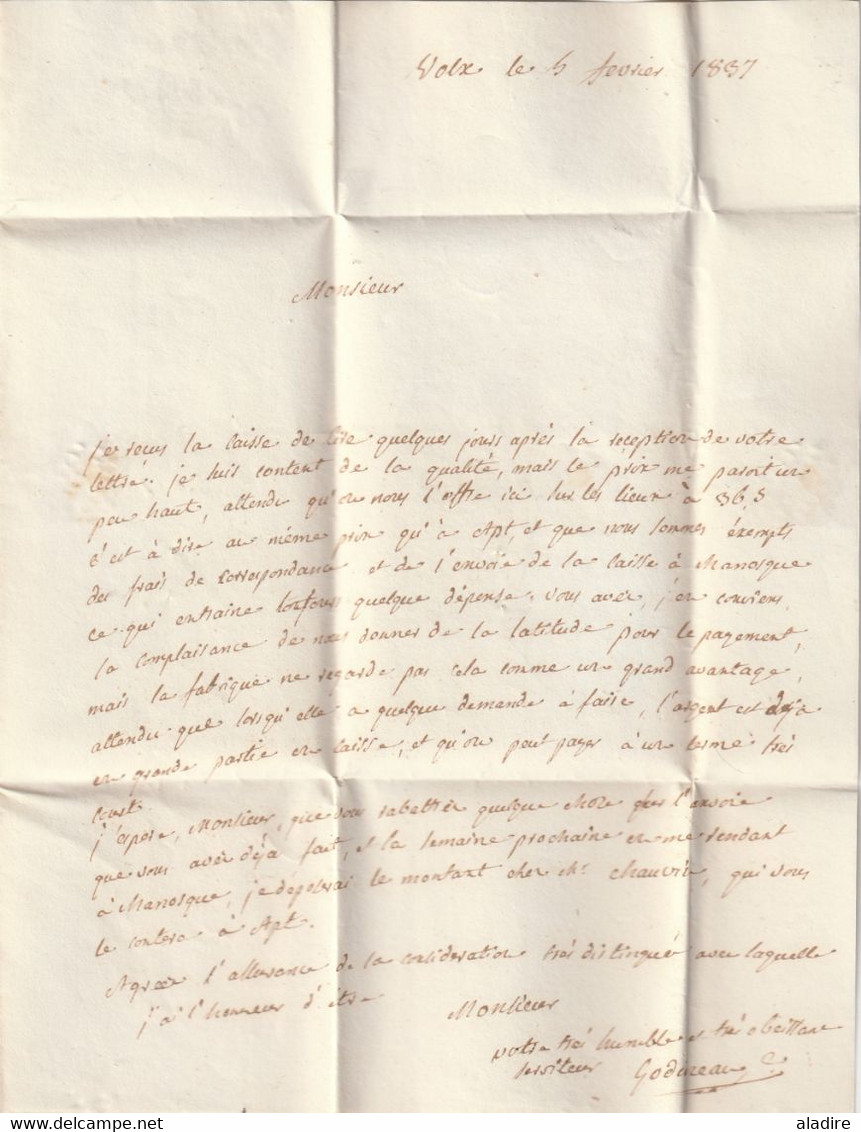 Volx le 5 fevrier 1837
Monsieur
je reçus la caisse de cire quelques jours après la reception de votre
lettre. je suis content de la qualité, mais le prix me paroit un
peu haut, attendu qu'on nous l'offre ici sur les lieux à 36,s
c'est à dire au même prix qu'à Apt, et que nous sommes exempts
des frais de correspondance et de l'envoie de la caisse à Manosque
ce qui entraine toujours quelque dépense. vous avez, j'en conviens,
la complaissance de nous donner de la latitude pour le payement,
mais la fabrique ne regarde pas cela comme un grand avantage,
attendu que lorsqu'elle a quelque demande à faire, l'argent est deja
en grande partie en caisse, et qu'on peut payer à un terme très
court.
j'espere, Monsieur, que vous rabattrez quelque chose sur l'envoie
que vous avez déjà fait, et la semaine prochaine en me rendant
à Manosque, je déposerai le montant chez Mr. Chauvin, qui vous
le contera à Apt.
Agréez l'assurance de la consideration très distinguée avec laquelle
j'ai l'honneur d'être
Monsieur
votre très humble et très obeissant
serviteur Godineau
aladire